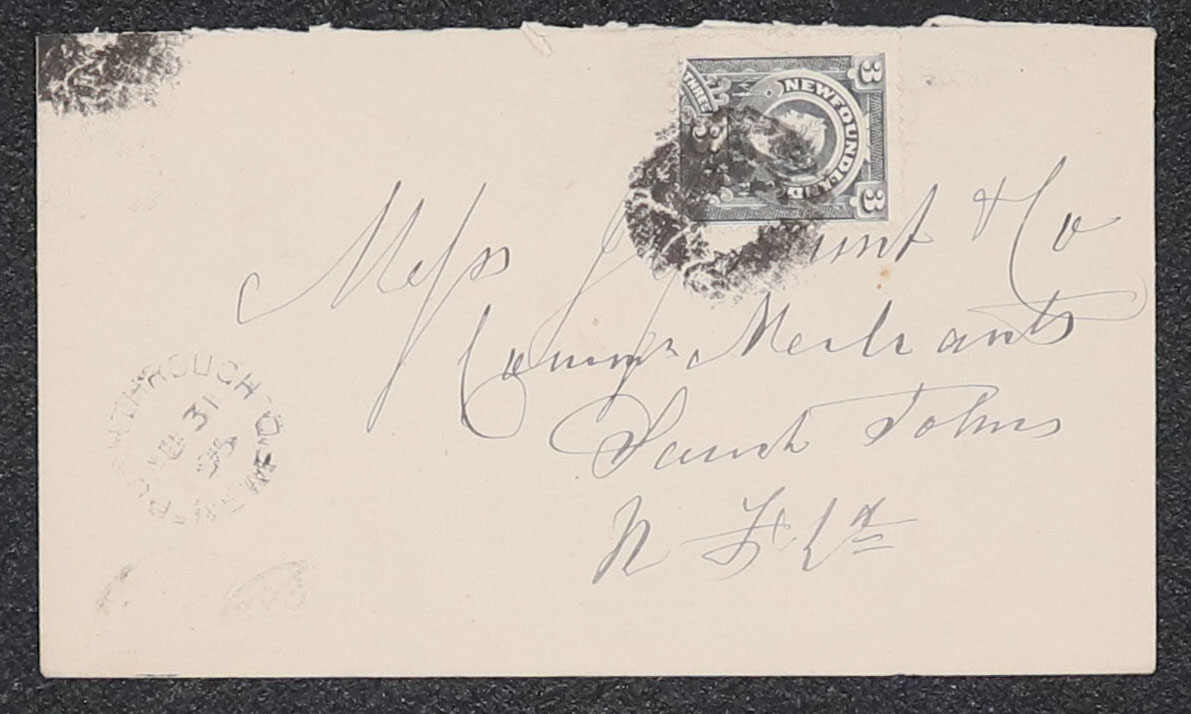 3 NEWFOUNDLAND 3
THREE
Mess J J unt & Co
Comms Merchants
Saint Johns
N F Ld
THROUGH
31